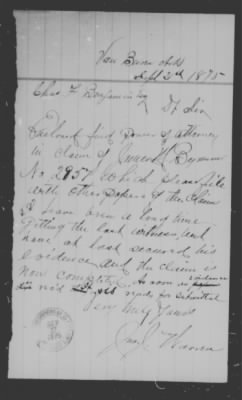 Van Buren Ark
Sept 2nd 1875
Chas F Benjamin Esq
Dr Sir
Enclosed find power of attorney
in claim of
No 2957 which please file
with other papers of the claim
I have been a long time
getting the last witness, but
have at last secured his
evidence and the claim is
now complete. As soon as evidence
is rec'd ready for submittal
Very truly yours